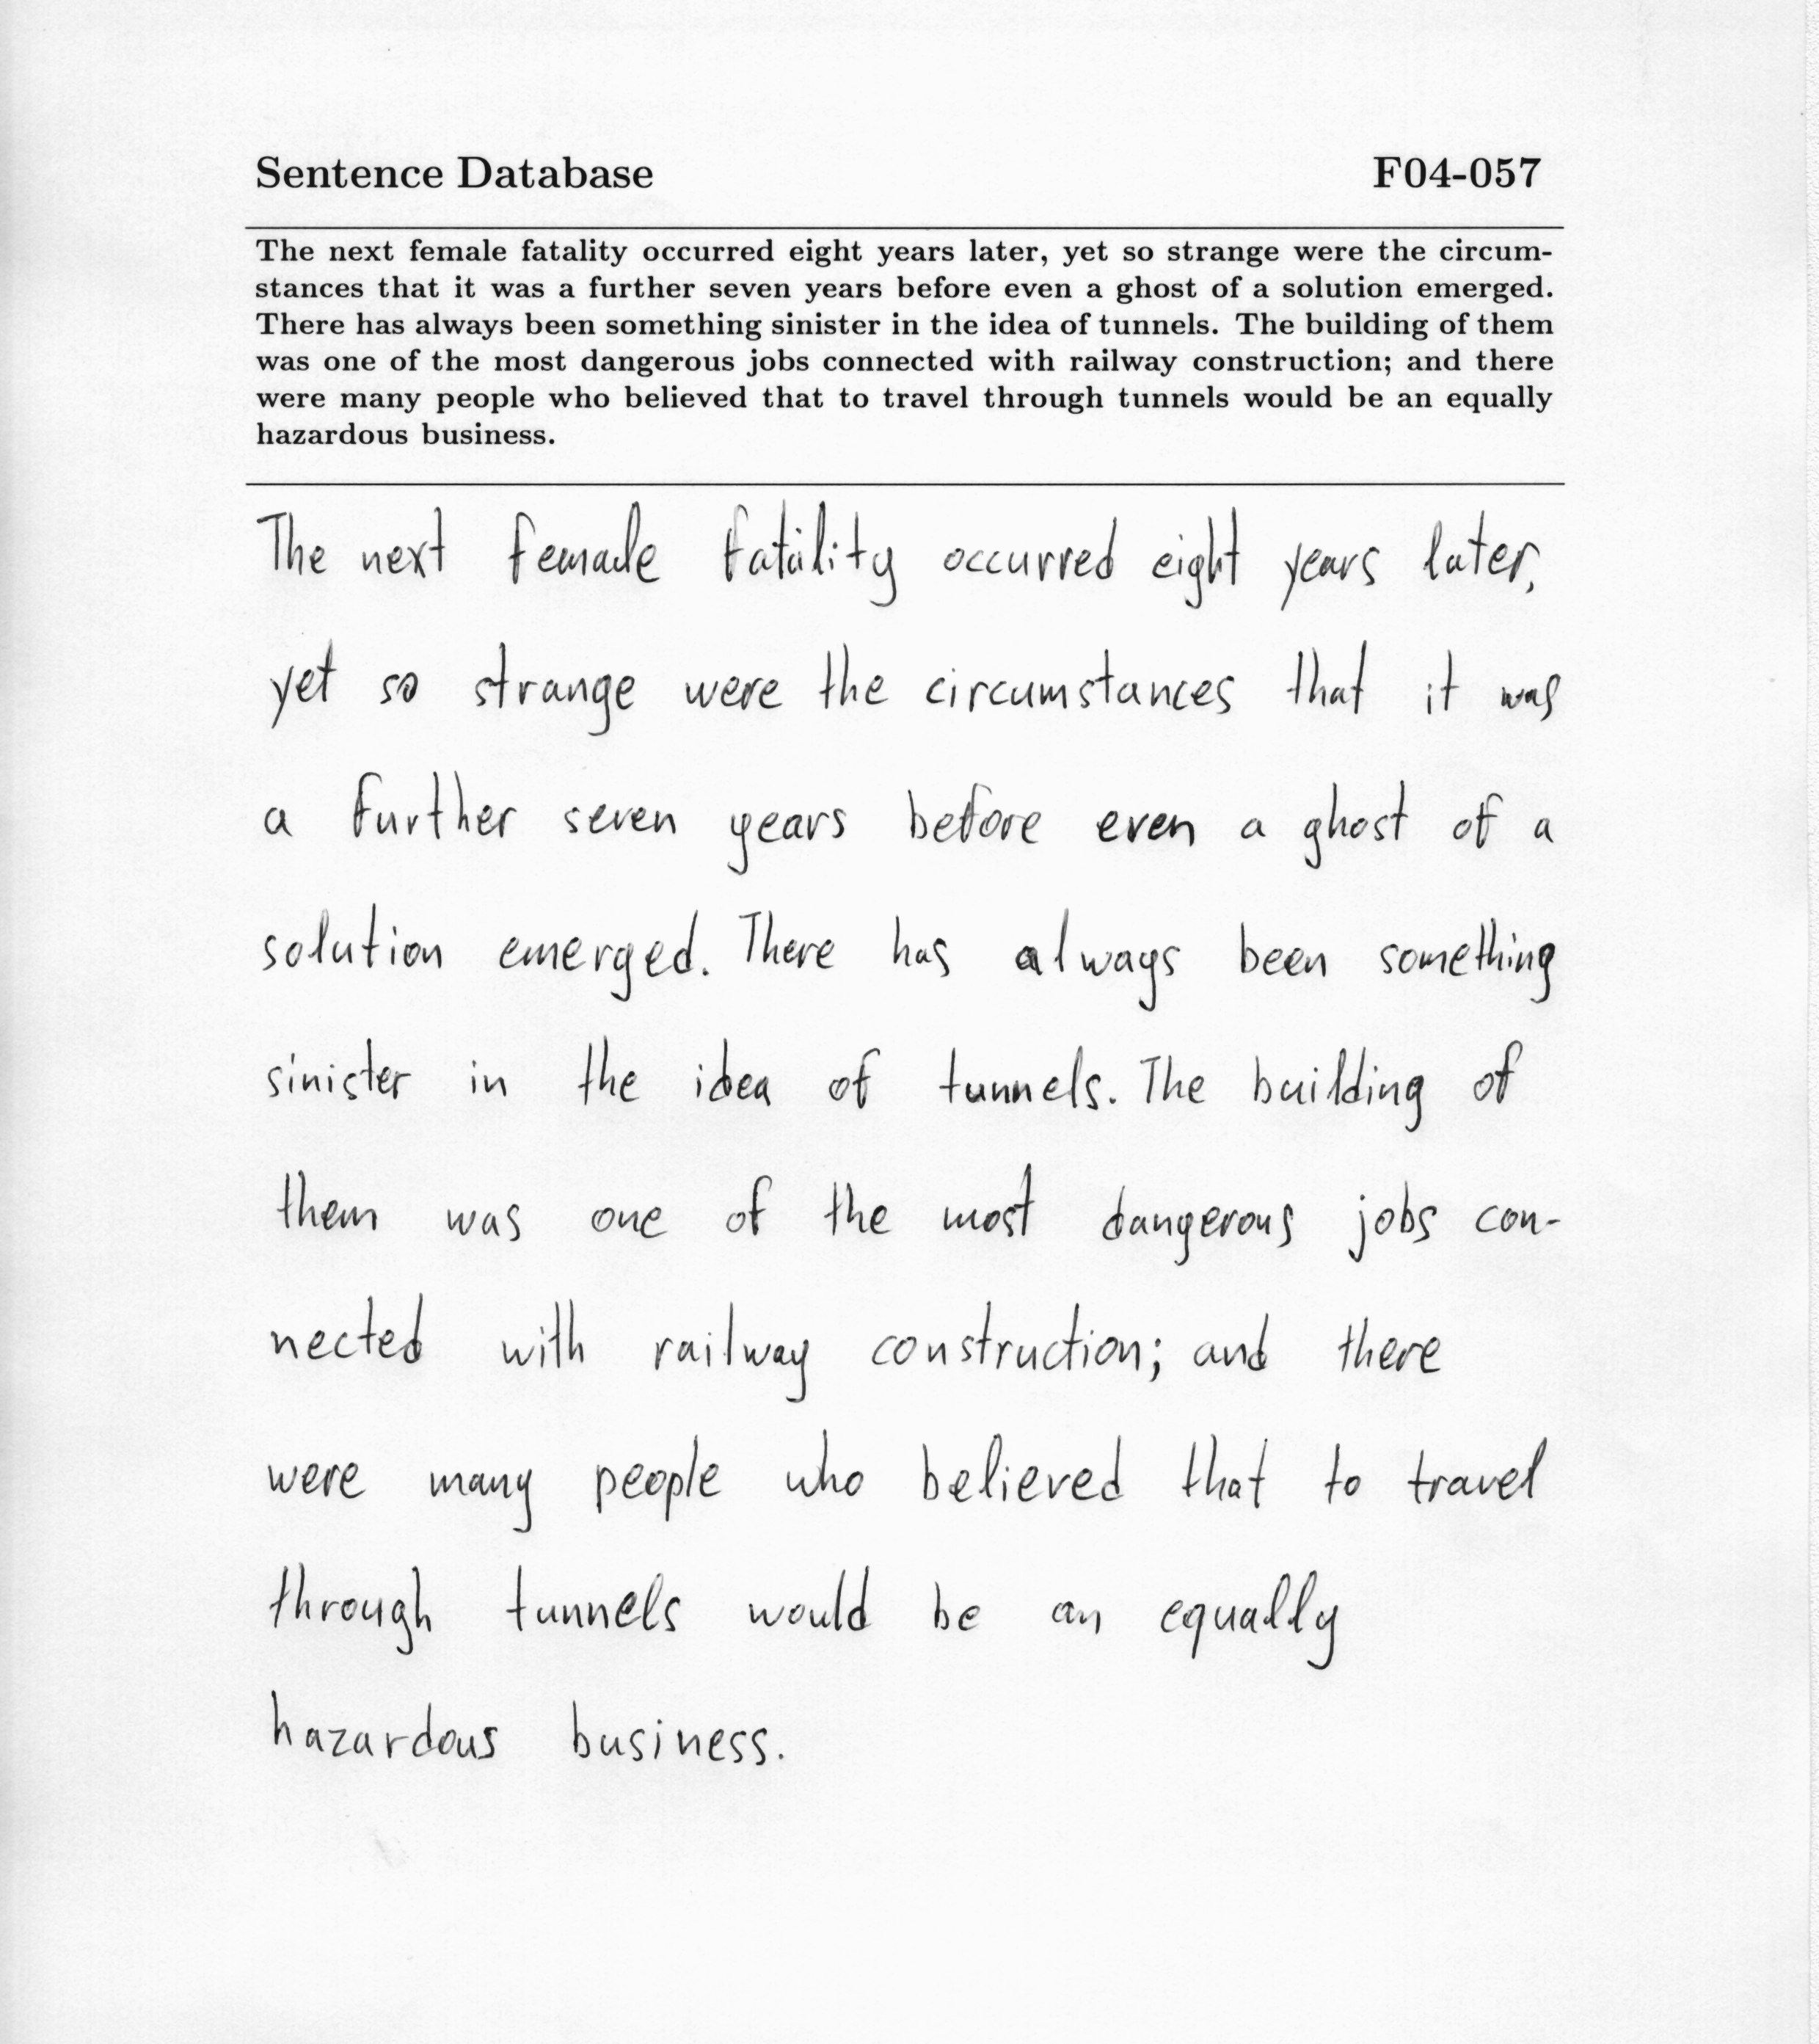 Sentence Database F04-057
The next female fatality occurred eight years later, yet so strange were the circum-
stances that it was a further seven years before even a ghost of a solution emerged.
There has always been something sinister in the idea of tunnels. The building of them
was one of the most dangerous jobs connected with railway construction; and there
were many people who believed that to travel through tunnels would be an equally
hazardous business.
The next female fatality occurred eight years later,
yet so strange were the circumstances that it was
a further seven years before even a ghost of a
solution emerged. There has always been something
sinister in the idea of tunnels. The building of
them was one of the most dangerous jobs con-
nected with railway construction; and there
were many people who believed that to travel
through tunnels would be an equally
hazardous business.